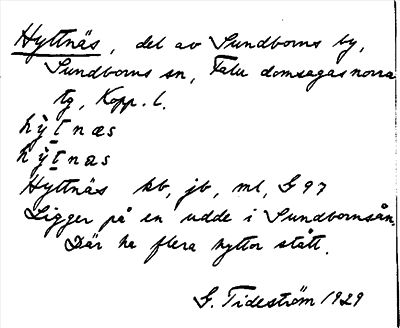 Hyttnäs, del av Sundborns by,
Sundborns sn, Falu domsagas norra
tg, Kopp. l.
hỳt̲næs
hỳt̲næs
Hyttnäs kb, jb, ml, G 97
Ligger på en udde i Sundbornsån.
Där ha flera hyttor stått.
G. Tideström 1929